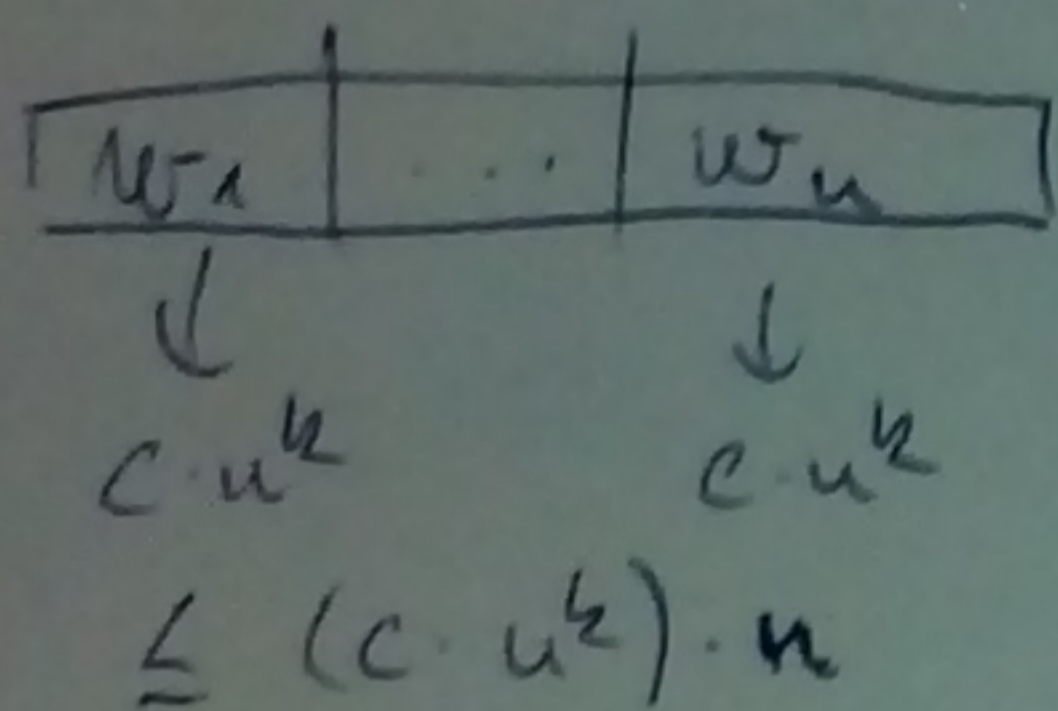 w₁ ... wₙ
↓ ↓
c·n^k c·n^k
≤ (c·n^k)·n